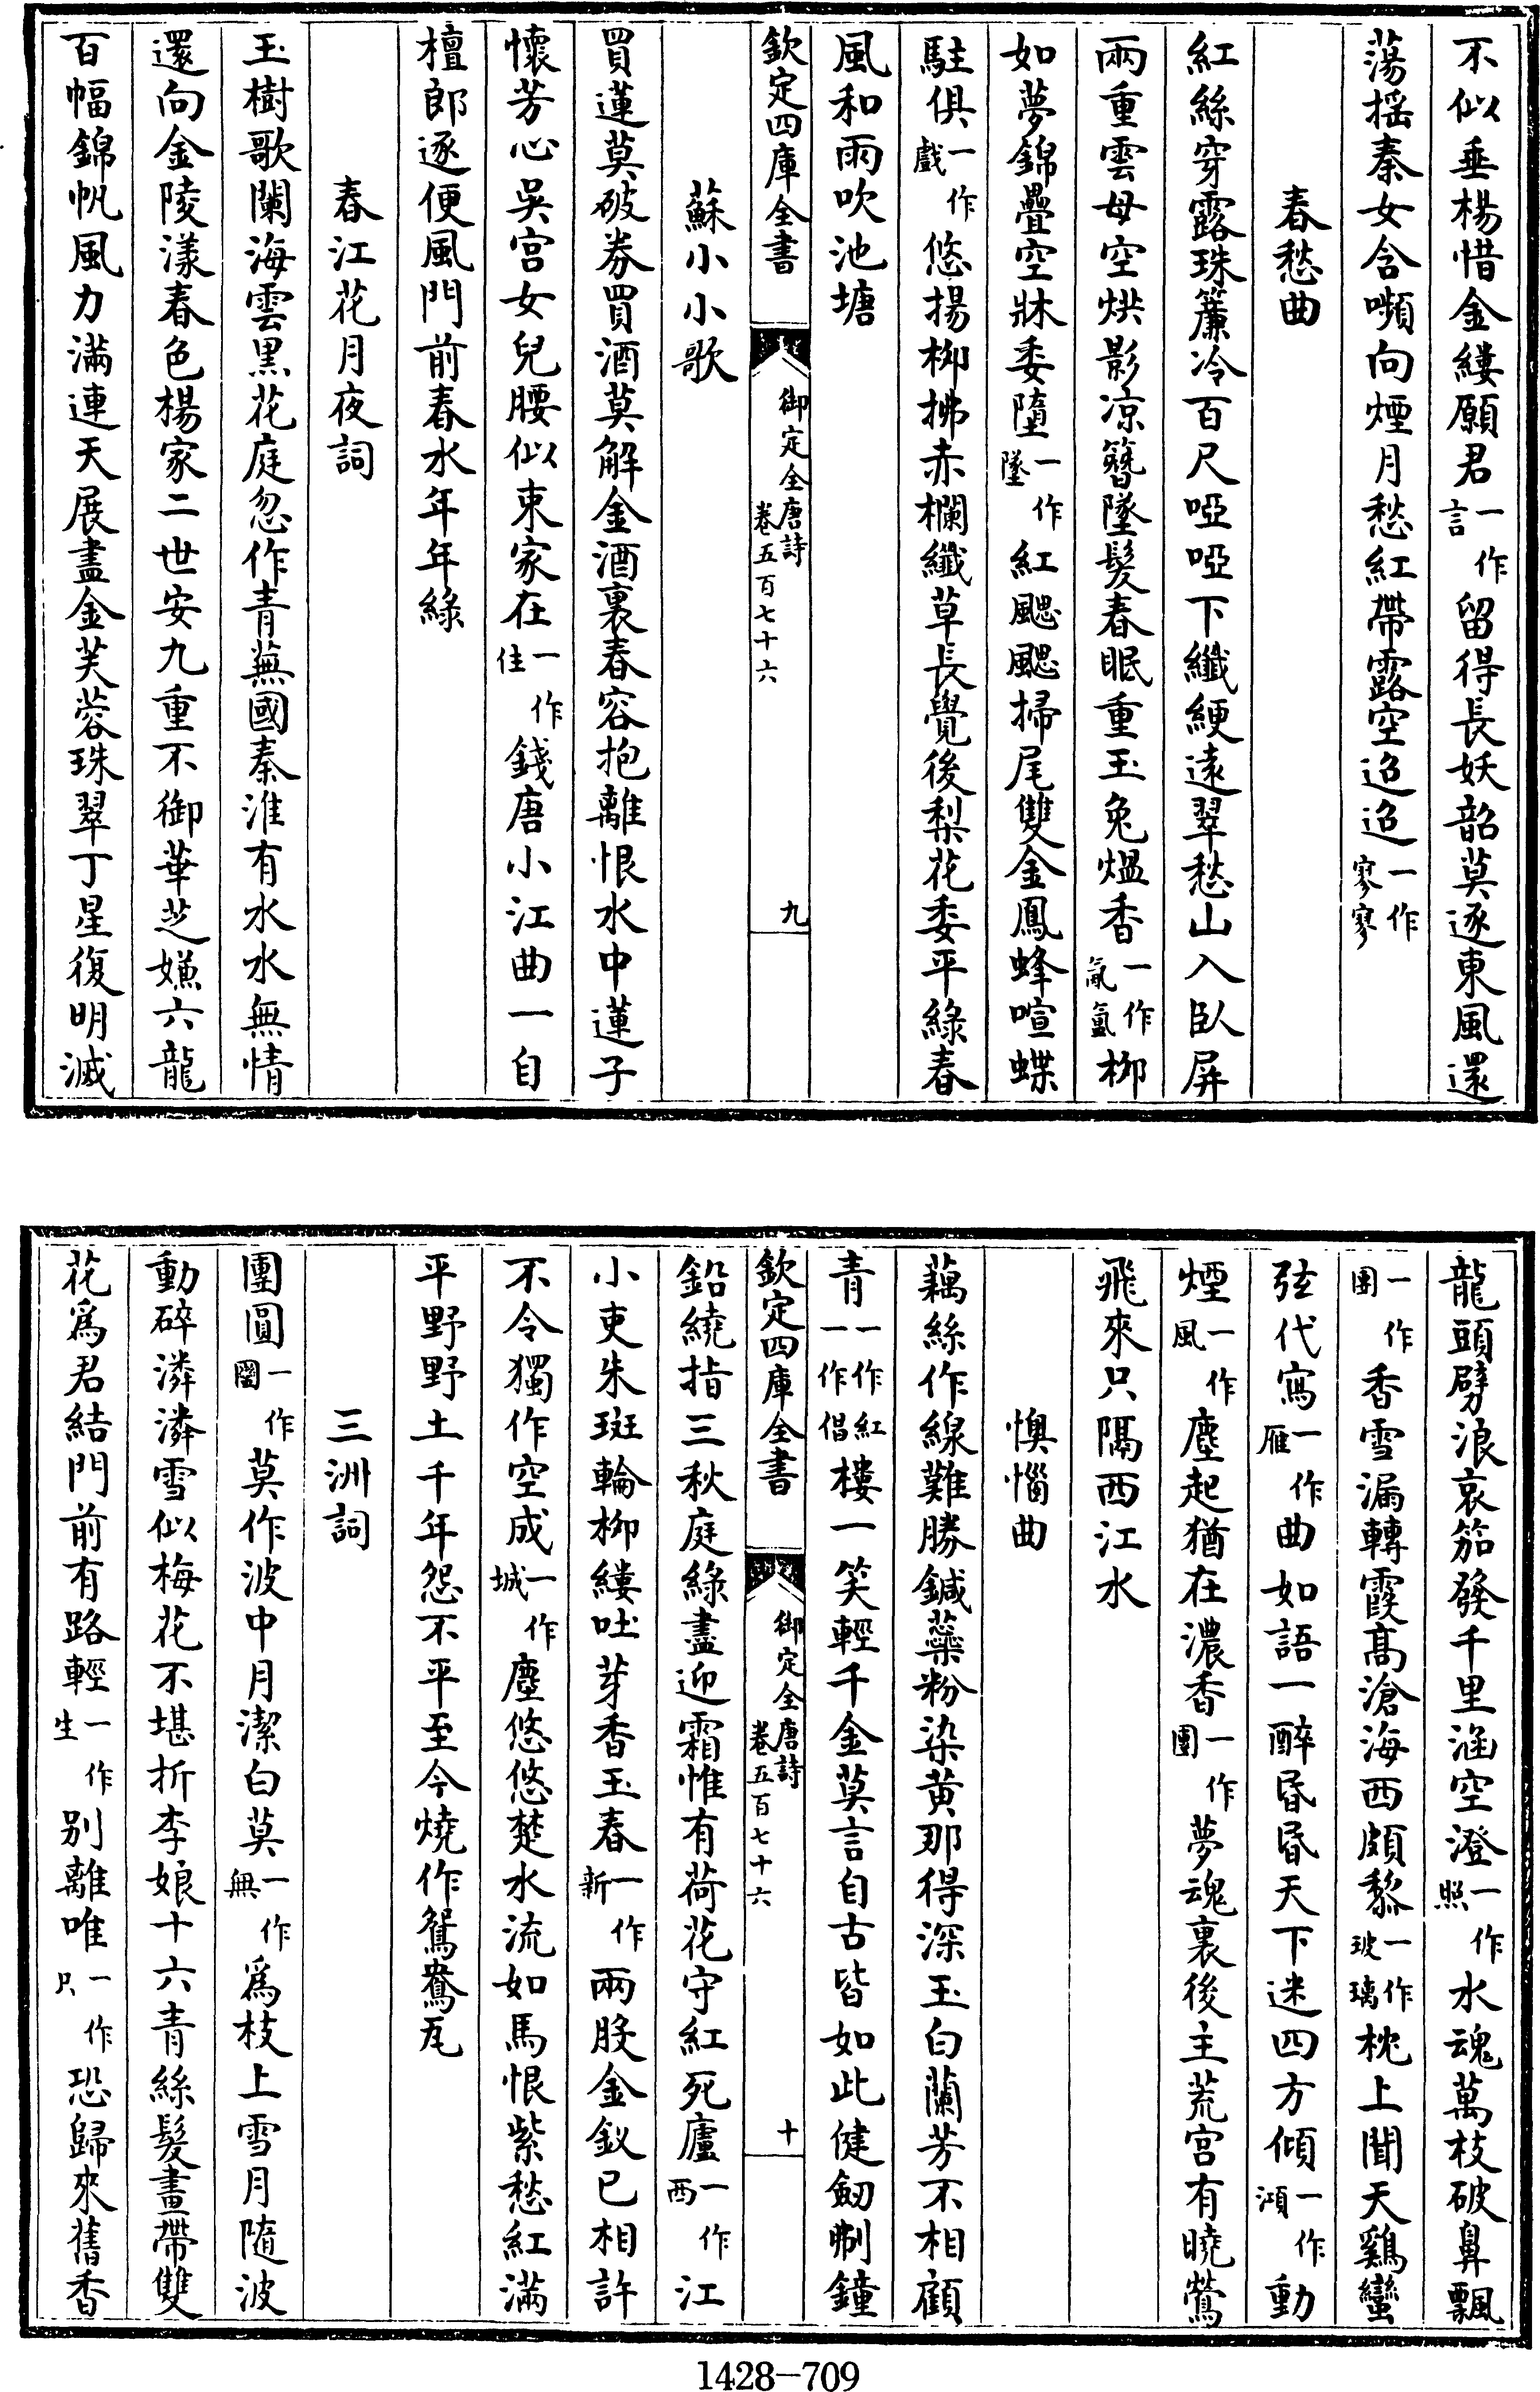 不似垂楊惜金縷願君一作言留得長妖韶莫逐東風還
蕩揺秦女含嚬向煙月愁紅帶露空迢迢一作寥寥
春愁曲
紅絲穿露珠簾冷百尺啞啞下纖綆逺翠愁山入臥屏
兩重雲母空烘影涼簪墜髮春眠重玉兔煴香一作氤氳柳
如夢錦疊空牀委墮一作墜紅颸颸掃尾雙金鳳蜂喧蝶
駐俱一作戲悠揚柳拂赤欄纖草長覺後梨花委平緑春
風和雨吹池塘
欽定四庫全書 御定全唐詩卷五百七十六 九
蘇小小歌
買蓮莫破券買酒莫解金酒裏春容抱離恨水中蓮子
懷芳心吳宫女兒腰似束家在一作住錢唐小江曲一自
檀郎逐便風門前春水年年緑
春江花月夜詞
玉樹歌闌海雲黒花庭忽作青蕪國秦淮有水水無情
還向金陵漾春色楊家二世安九重不御華芝嫌六龍
百幅錦帆風力滿連天展盡金芙蓉珠翠丁星復明滅
龍頭劈浪哀笳發千里涵空澄一作照水魂萬枝破鼻飄
一作團香雪漏轉霞髙滄海西頗黎一作玻璃枕上聞天鷄蠻
弦代寫一作雁曲如語一醉昏昏天下迷四方傾一作澒動
煙一作風塵起猶在濃香一作團夢魂裏後主荒宫有曉鶯
飛來只隔西江水
懊惱曲
藕絲作線難勝鍼蘂粉染黄那得深玉白蘭芳不相顧
青一作紅一作倡樓一笑輕千金莫言自古皆如此健劒刜鐘
欽定四庫全書 御定全唐詩卷五百七十六 十
鉛繞指三秋庭緑盡迎霜惟有荷花守紅死廬一作西江
小吏朱斑輪柳縷吐芽香玉春一作新兩股金釵已相許
不令獨作空成一作城塵悠悠楚水流如馬恨紫愁紅滿
平野野土千年怨不平至今燒作鴛鴦瓦
三洲詞
團圓一作圞莫作波中月潔白莫一作無爲枝上雪月隨波
動碎潾潾雪似梅花不堪折李娘十六青絲髮畫帶雙
花爲君結門前有路輕一作生别離唯一作只恐歸來舊香
1428—709